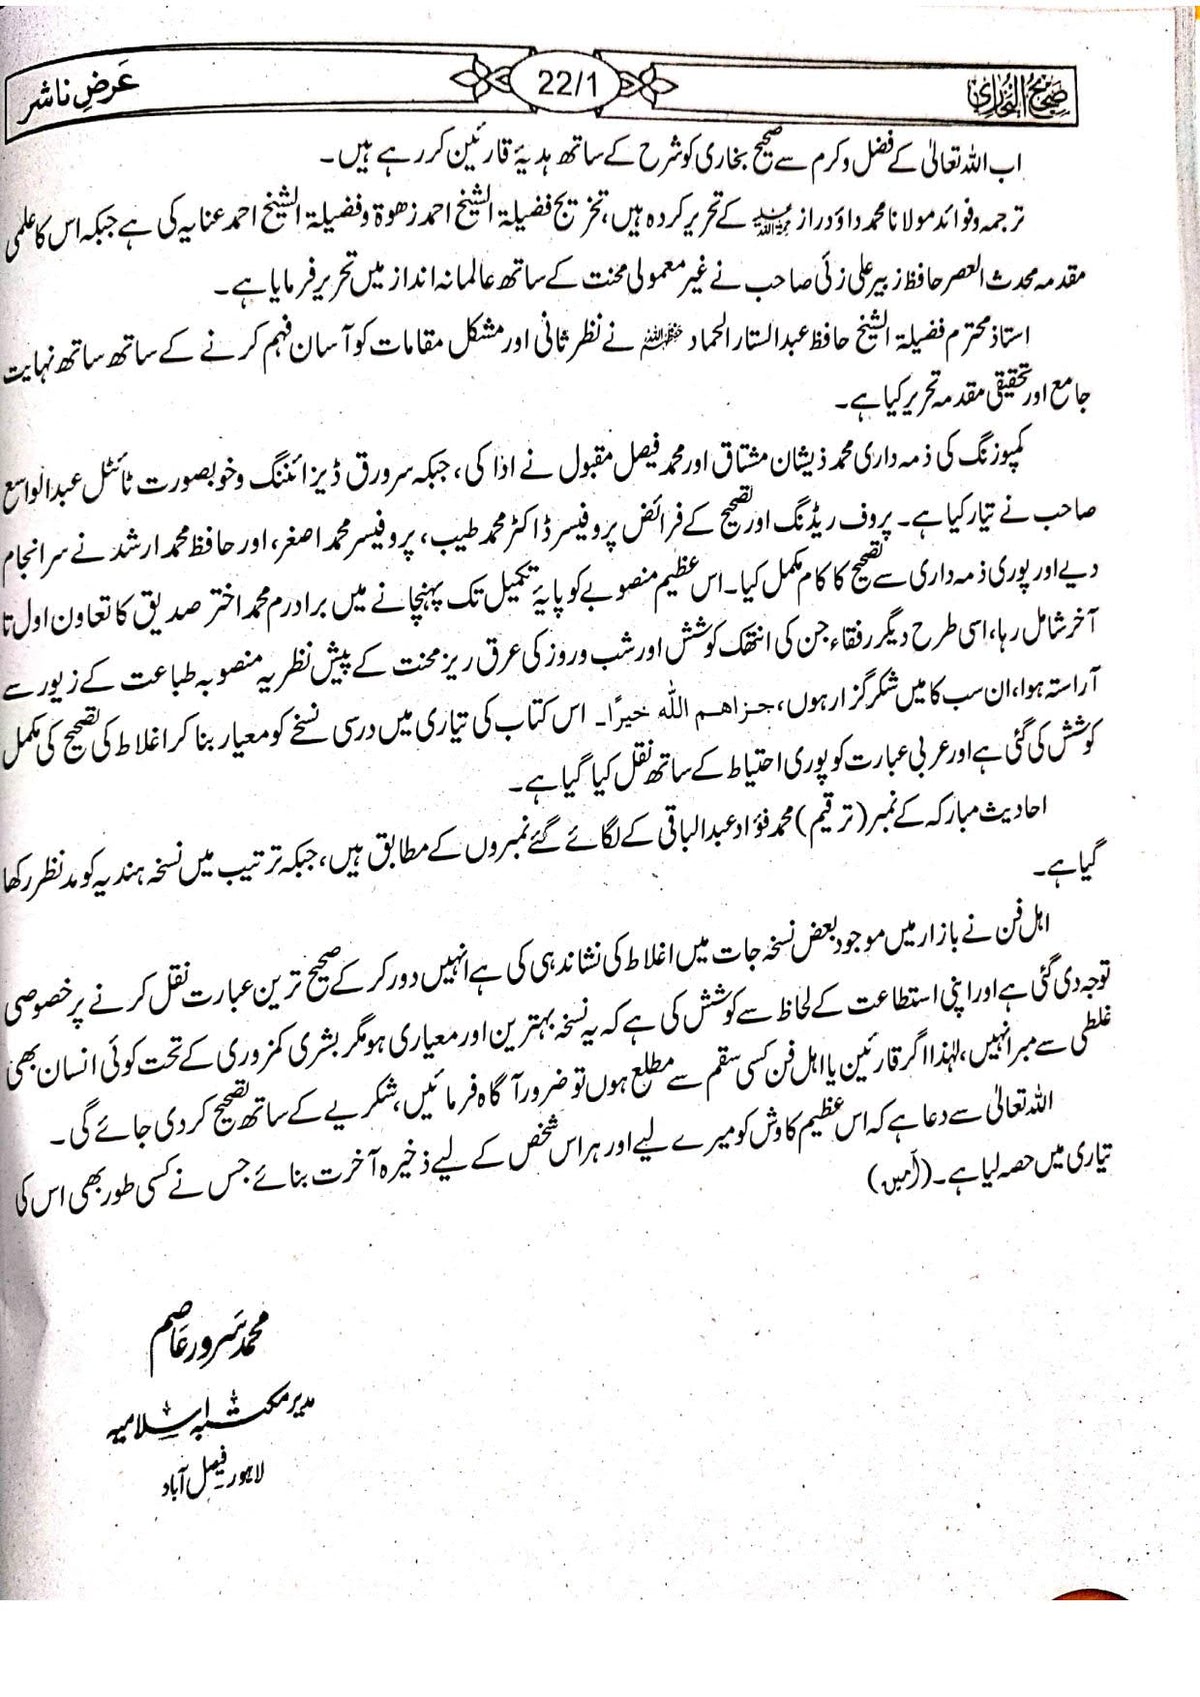 صحیح البخاری
22/1
عَرضِ ناشر
اب اللہ تعالیٰ کے فضل وکرم سے صحیح بخاری کو شرح کے ساتھ ہدیۂ قارئین کر رہے ہیں۔
ترجمہ و فوائد مولانا محمد داؤد راز رحمہ اللہ کے تحریر کردہ ہیں، تخریج فضیلۃ الشیخ احمد زھوۃ و فضیلۃ الشیخ احمد عنایہ کی ہے جبکہ اس کا علمی
مقدمہ محدث العصر حافظ زبیر علی زئی صاحب نے غیر معمولی محنت کے ساتھ عالمانہ انداز میں تحریر فرمایا ہے۔
استاذ محترم فضیلۃ الشیخ حافظ عبدالستار الحماد حفظہ اللہ نے نظر ثانی اور مشکل مقامات کو آسان فہم کرنے کے ساتھ ساتھ نہایت
جامع اور تحقیقی مقدمہ تحریر کیا ہے۔
کمپوزنگ کی ذمہ داری محمد ذیشان مشتاق اور محمد فیصل مقبول نے ادا کی، جبکہ سرورق ڈیزائننگ و خوبصورت ٹائٹل عبدالواسع
صاحب نے تیار کیا ہے۔ پروف ریڈنگ اور تصحیح کے فرائض پروفیسر ڈاکٹر محمد طیب، پروفیسر محمد اصغر، اور حافظ محمد ارشد نے سرانجام
دیے اور پوری ذمہ داری سے تصحیح کا کام مکمل کیا۔ اس عظیم منصوبے کو پایۂ تکمیل تک پہنچانے میں برادرم محمد اختر صدیق کا تعاون اول تا
آخر شامل رہا، اسی طرح دیگر رفقاء جن کی انتھک کوشش اور شب و روز کی عرق ریز محنت کے پیش نظر یہ منصوبہ طباعت کے زیور سے
آراستہ ہوا، ان سب کا میں شکر گزار ہوں، جزاھم اللہ خیرًا۔ اس کتاب کی تیاری میں درسی نسخے کو معیار بنا کر اغلاط کی تصحیح کی مکمل
کوشش کی گئی ہے اور عربی عبارت کو پوری احتیاط کے ساتھ نقل کیا گیا ہے۔
احادیث مبارکہ کے نمبر (ترقیم) محمد فؤاد عبدالباقی کے لگائے گئے نمبروں کے مطابق ہیں، جبکہ ترتیب میں نسخہ ہندیہ کو مدنظر رکھا
گیا ہے۔
اہل فن نے بازار میں موجود بعض نسخہ جات میں اغلاط کی نشاندہی کی ہے انہیں دور کر کے صحیح ترین عبارت نقل کرنے پر خصوصی
توجہ دی گئی ہے اور اپنی استطاعت کے لحاظ سے کوشش کی ہے کہ یہ نسخہ بہترین اور معیاری ہو مگر بشری کمزوری کے تحت کوئی انسان بھی
غلطی سے مبرا نہیں، لہٰذا اگر قارئین یا اہل فن کسی سقم سے مطلع ہوں تو ضرور آگاہ فرمائیں، شکریے کے ساتھ تصحیح کر دی جائے گی۔
اللہ تعالیٰ سے دعا ہے کہ اس عظیم کاوش کو میرے لیے اور ہر اس شخص کے لیے ذخیرہ آخرت بنائے جس نے کسی طور بھی اس کی
تیاری میں حصہ لیا ہے۔ (آمین)
محمد سَرور عَاصم
مدیر مکتبہ اسلامیہ
لاہور۔فیصل آباد